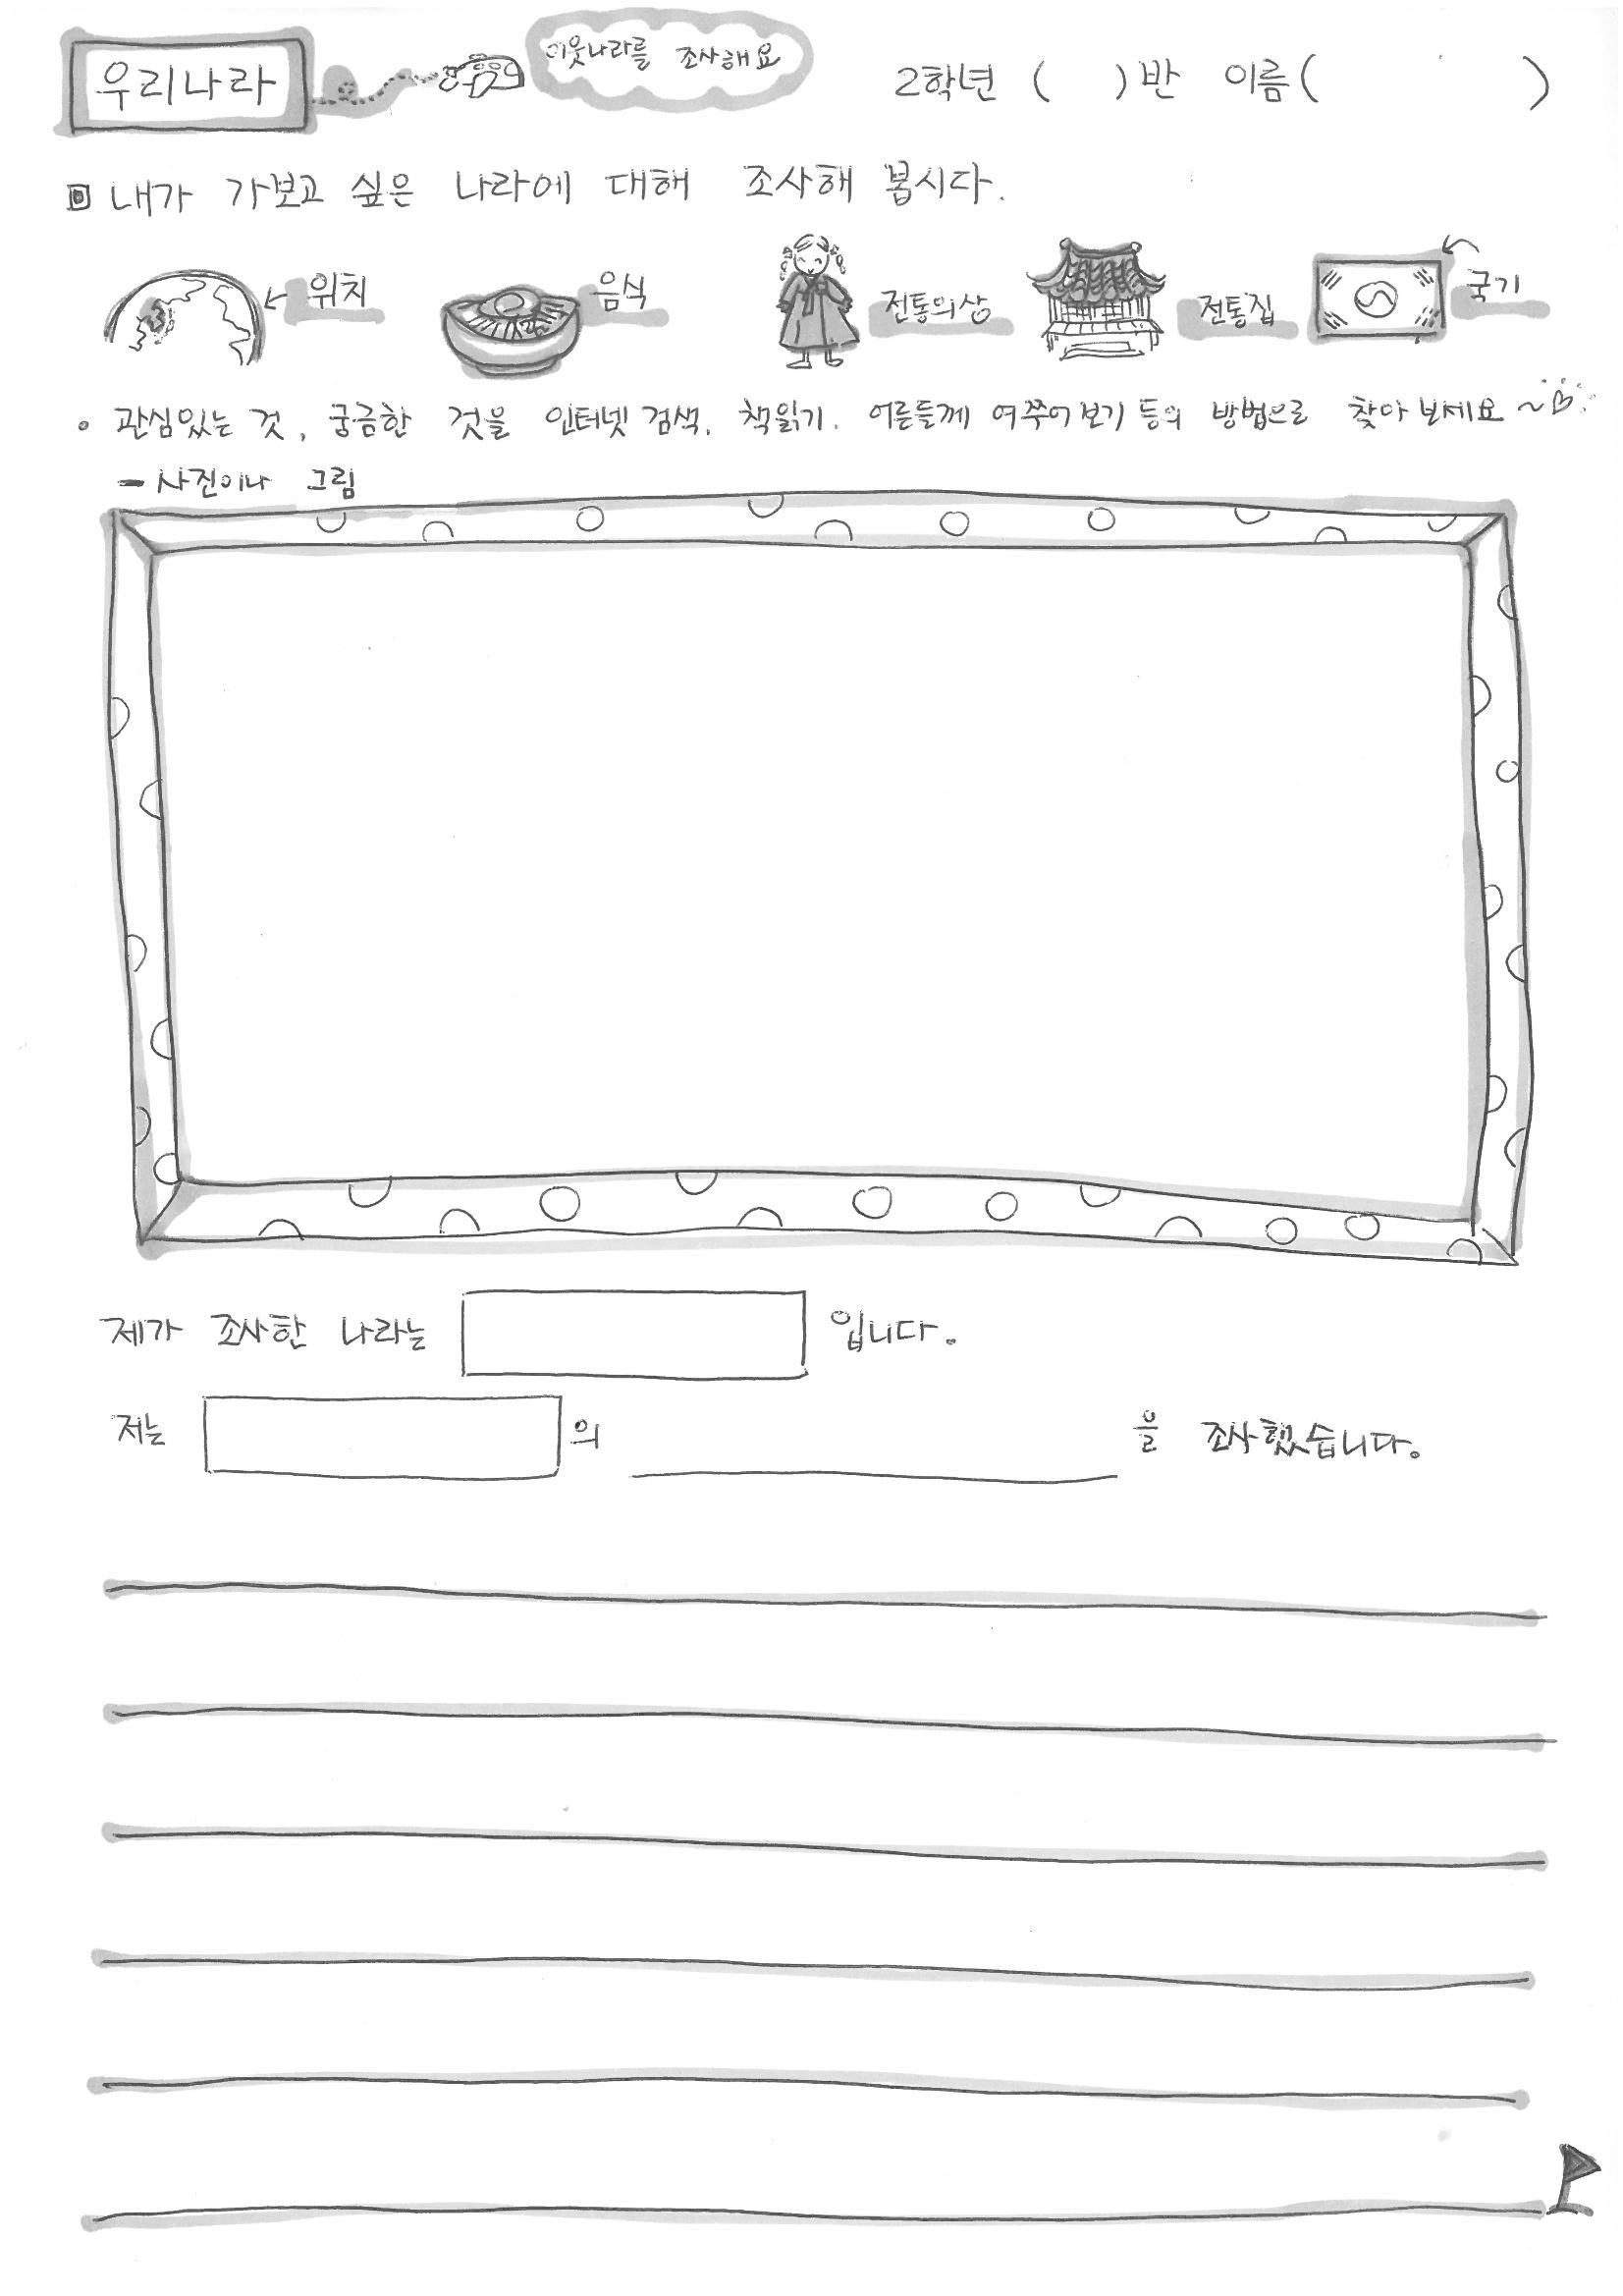 우리나라 이웃나라를 조사해요 2학년 ( )반 이름( )
내가 가보고 싶은 나라에 대해 조사해 봅시다.
위치 음식 전통의상 전통집 국기
• 관심있는 것, 궁금한 것을 인터넷 검색, 책읽기, 어른들께 여쭈어보기 등의 방법으로 찾아 보세요~
- 사진이나 그림
제가 조사한 나라는 입니다.
저는 의 을 조사했습니다.